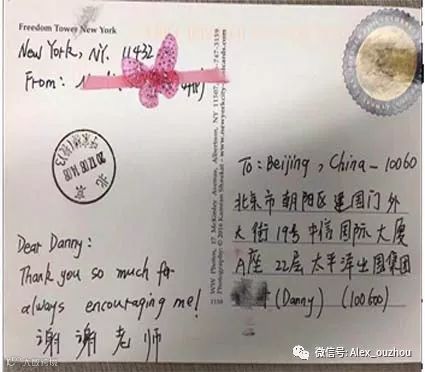 Freedom Tower New York
New York, NY. 11432
From:
To: Beijing, China - 10060
北京市朝阳区建国门外
大街19号中信国际大厦
A座22层太平洋出国集团
(Danny) (100600)
Dear Danny:
Thank you so much for
always encouraging me!
谢谢老师
WW Photos, 17 McKinley Avenue, Albertson, NY 11507
Photography: © 2016 Kamran Shaukat - www.newyorkcity
3159
北京
微信号: Alex_ouzhou